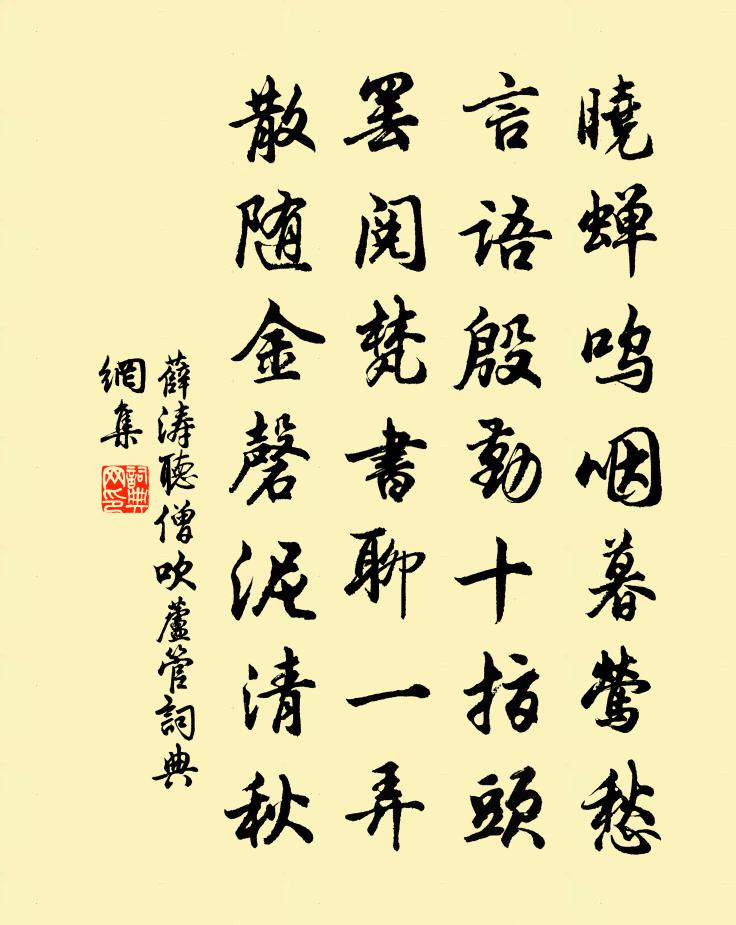 曉蟬鸣咽暮鶯愁
言語殷勤十指頭
罢阅梵書聊一弄
散随金磬泥清秋
薛涛聽僧吹蘆管詞典
網集
詞典
网印